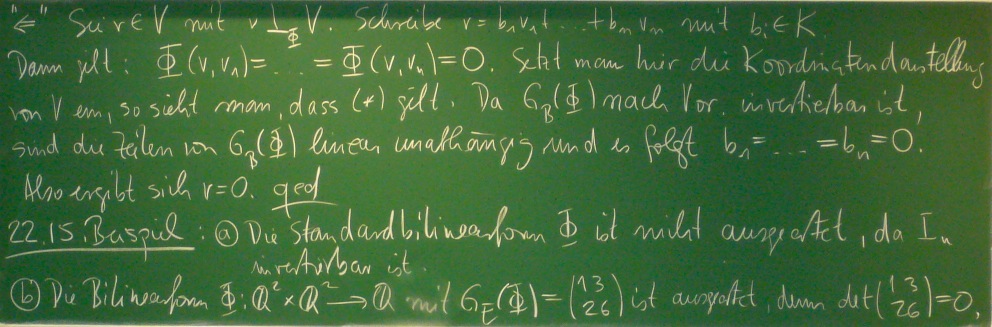 "⇐" Sei v∈V mit v ⊥_Φ V. Schreibe v = b₁v₁+ ... +bₙvₙ mit bᵢ∈K.
Dann gilt: Φ(v,v₁)= ... = Φ(v,vₙ)=0. Setzt man hier die Koordinatendarstellung
von V ein, so sieht man, dass (*) gilt. Da G_B(Φ) nach Vor. invertierbar ist,
sind die Zeilen von G_B(Φ) linear unabhängig und es folgt b₁= ... =bₙ=0.
Also ergibt sich v=0. qed
22.15 Beispiel: ⓐ Die Standardbilinearform Φ ist nicht ausgeartet, da Iₙ
invertierbar ist.
ⓑ Die Bilinearform Φ: ℚ²×ℚ² → ℚ mit G_E(Φ) = (1 3 / 2 6) ist ausgeartet, denn det(1 3 / 2 6)=0,